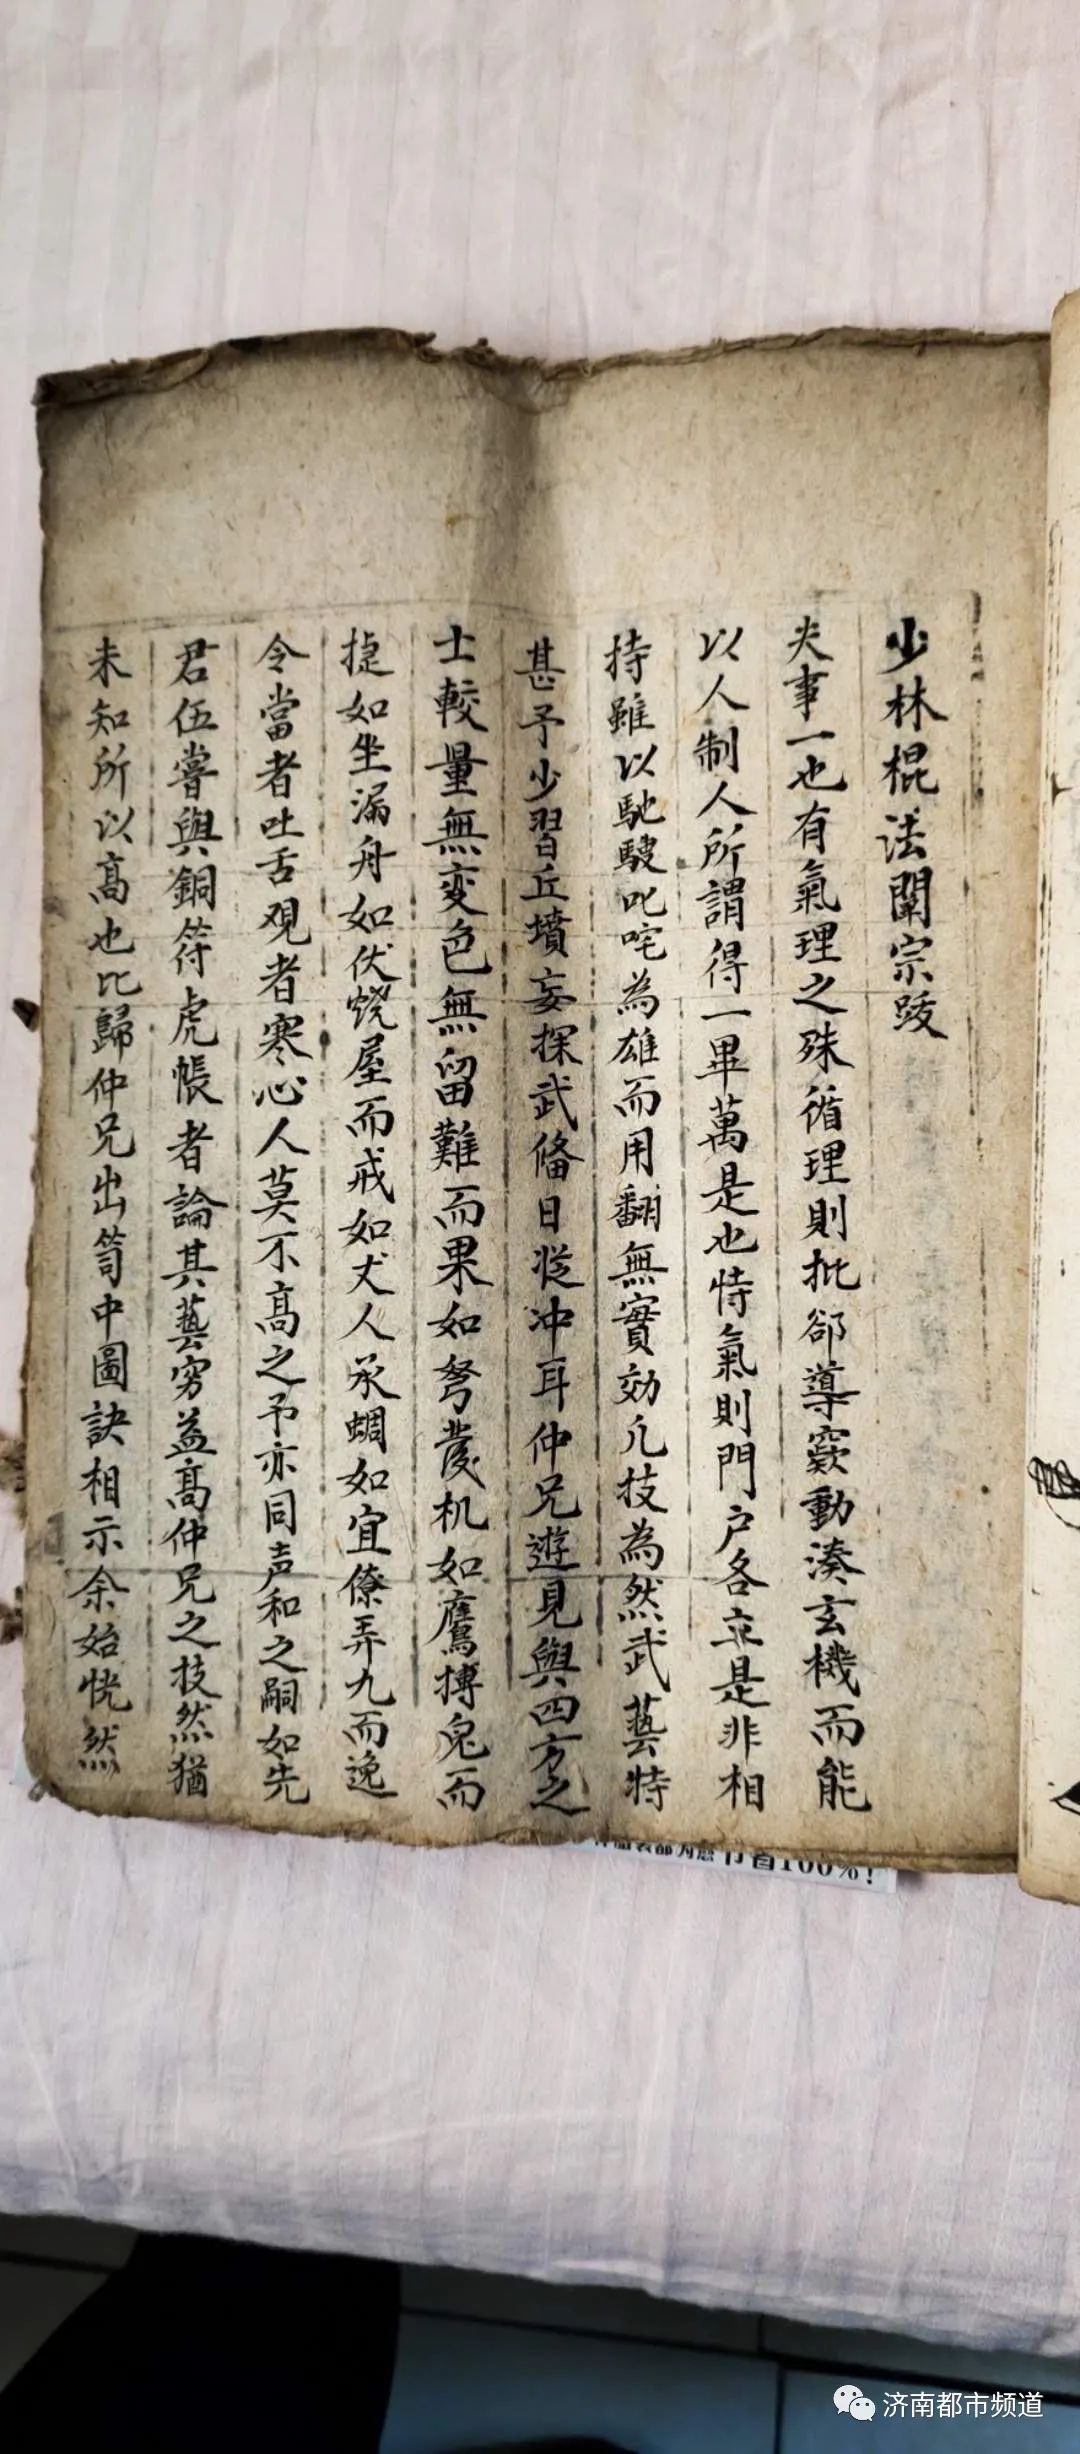 少林棍法闡宗跋
夫事一也有氣理之殊循理則批郤導窾動湊玄機而能
以人制人所謂得一畢萬是也恃氣則門户各立是非相
持雖以馳驟叱咤為雄而用翻無實効凡技為然武藝特
甚予少習丘墳妄探武俻日從冲耳仲兄遊見與四方之
士較量無変色無留難而果如弩發机如鷹搏兔而
㨗如坐漏舟如伏燒屋而戒如丈人承蜩如宜僚弄九而逸
令當者吐舌观者寒心人莫不高之予亦同声和之嗣如先
君伍嘗與銅符虎帳者論其藝穷益高仲兄之技然猶
未知所以高也比歸仲兄出笥中圖訣相示余始恍然
100%!
济南都市频道